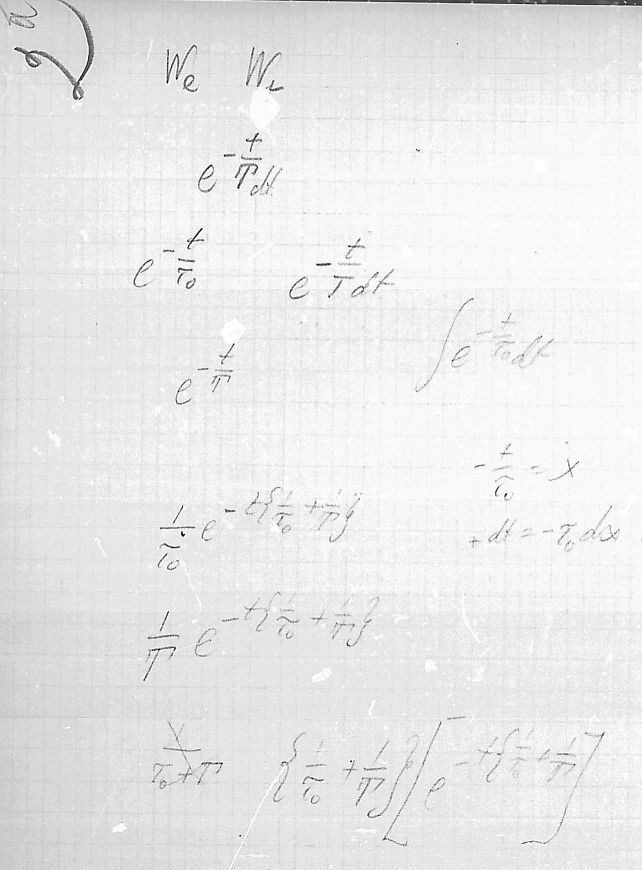 2a
W_e W_i
e^{-\frac{t}{T}} dt
e^{-\frac{t}{τ_0}} e^{-\frac{t}{T}} dt
e^{-\frac{t}{T}} ∫ e^{-\frac{t}{τ_0}} dt
-\frac{t}{τ_0} = x
\frac{1}{τ_0} e^{-t\{\frac{1}{τ_0} + \frac{1}{T}\}} + dt = -τ_0 dx
\frac{1}{T} e^{-t\{\frac{1}{τ_0} + \frac{1}{T}\}}
\frac{1}{τ_0 + T} \{\frac{1}{τ_0} + \frac{1}{T}\} [e^{-t\{\frac{1}{τ_0} + \frac{1}{T}\}}]